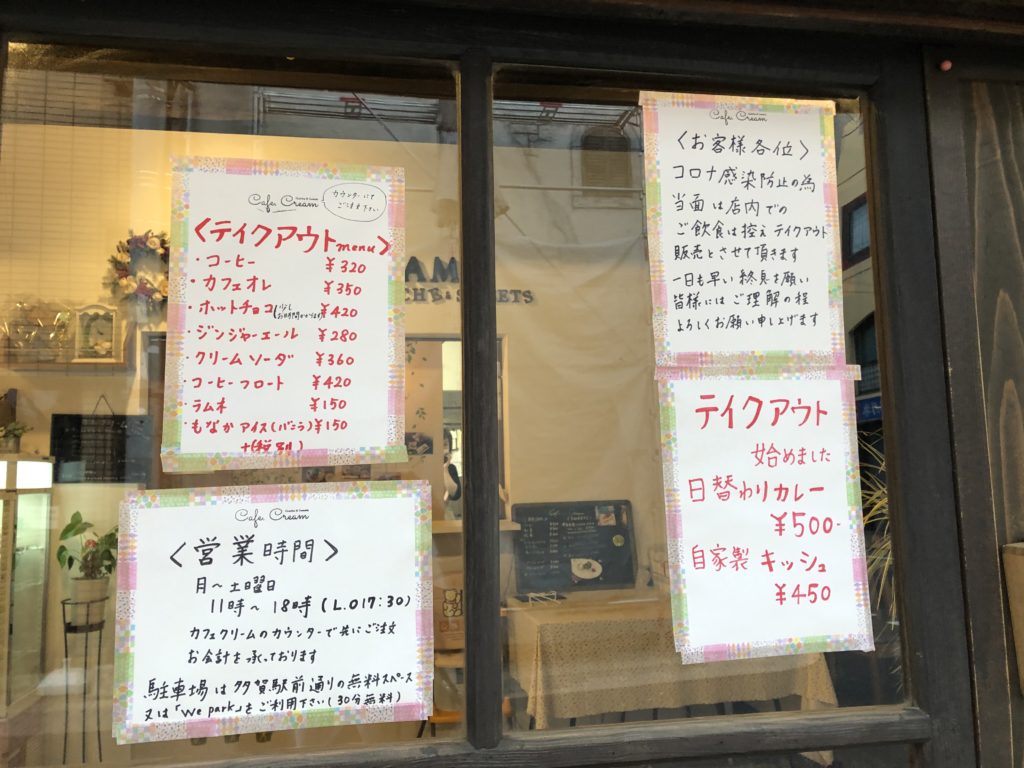 Cafe Cream
カウンターにて
ご注文下さい
〈テイクアウトmenu〉
・コーヒー ¥320
・カフェオレ ¥350
・ホットチョコ(少しお時間かかります) ¥420
・ジンジャーエール ¥280
・クリームソーダ ¥360
・コーヒーフロート ¥420
・ラムネ ¥150
・もなかアイス(バニラ) ¥150
+(税別)
Cafe Cream
〈営業時間〉
月〜土曜日
11時〜18時(L.O17:30)
カフェクリームのカウンターで共にご注文
お会計を承っております
駐車場は多賀駅前通りの無料スペース
又は「We park」をご利用下さい(30分無料)
Cafe Cream
〈お客様各位〉
コロナ感染防止の為
当面は店内での
ご飲食は控えテイクアウト
販売とさせて頂きます
一日も早い終息を願い
皆様にはご理解の程
よろしくお願い申し上げます
テイクアウト
始めました
日替わりカレー
¥500-
自家製キッシュ
¥450